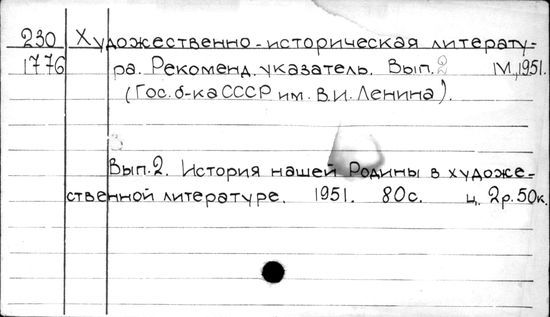 230 Художественно-историческая литерату-
1776 ра. Рекоменд. указатель. Вып. 2 М, 1951.
(Гос. б-ка СССР им. В.И. Ленина).
3
Вып. 2. История нашей Родины в художе-
ственной литературе. 1951. 80с. ц. 2р.50к.